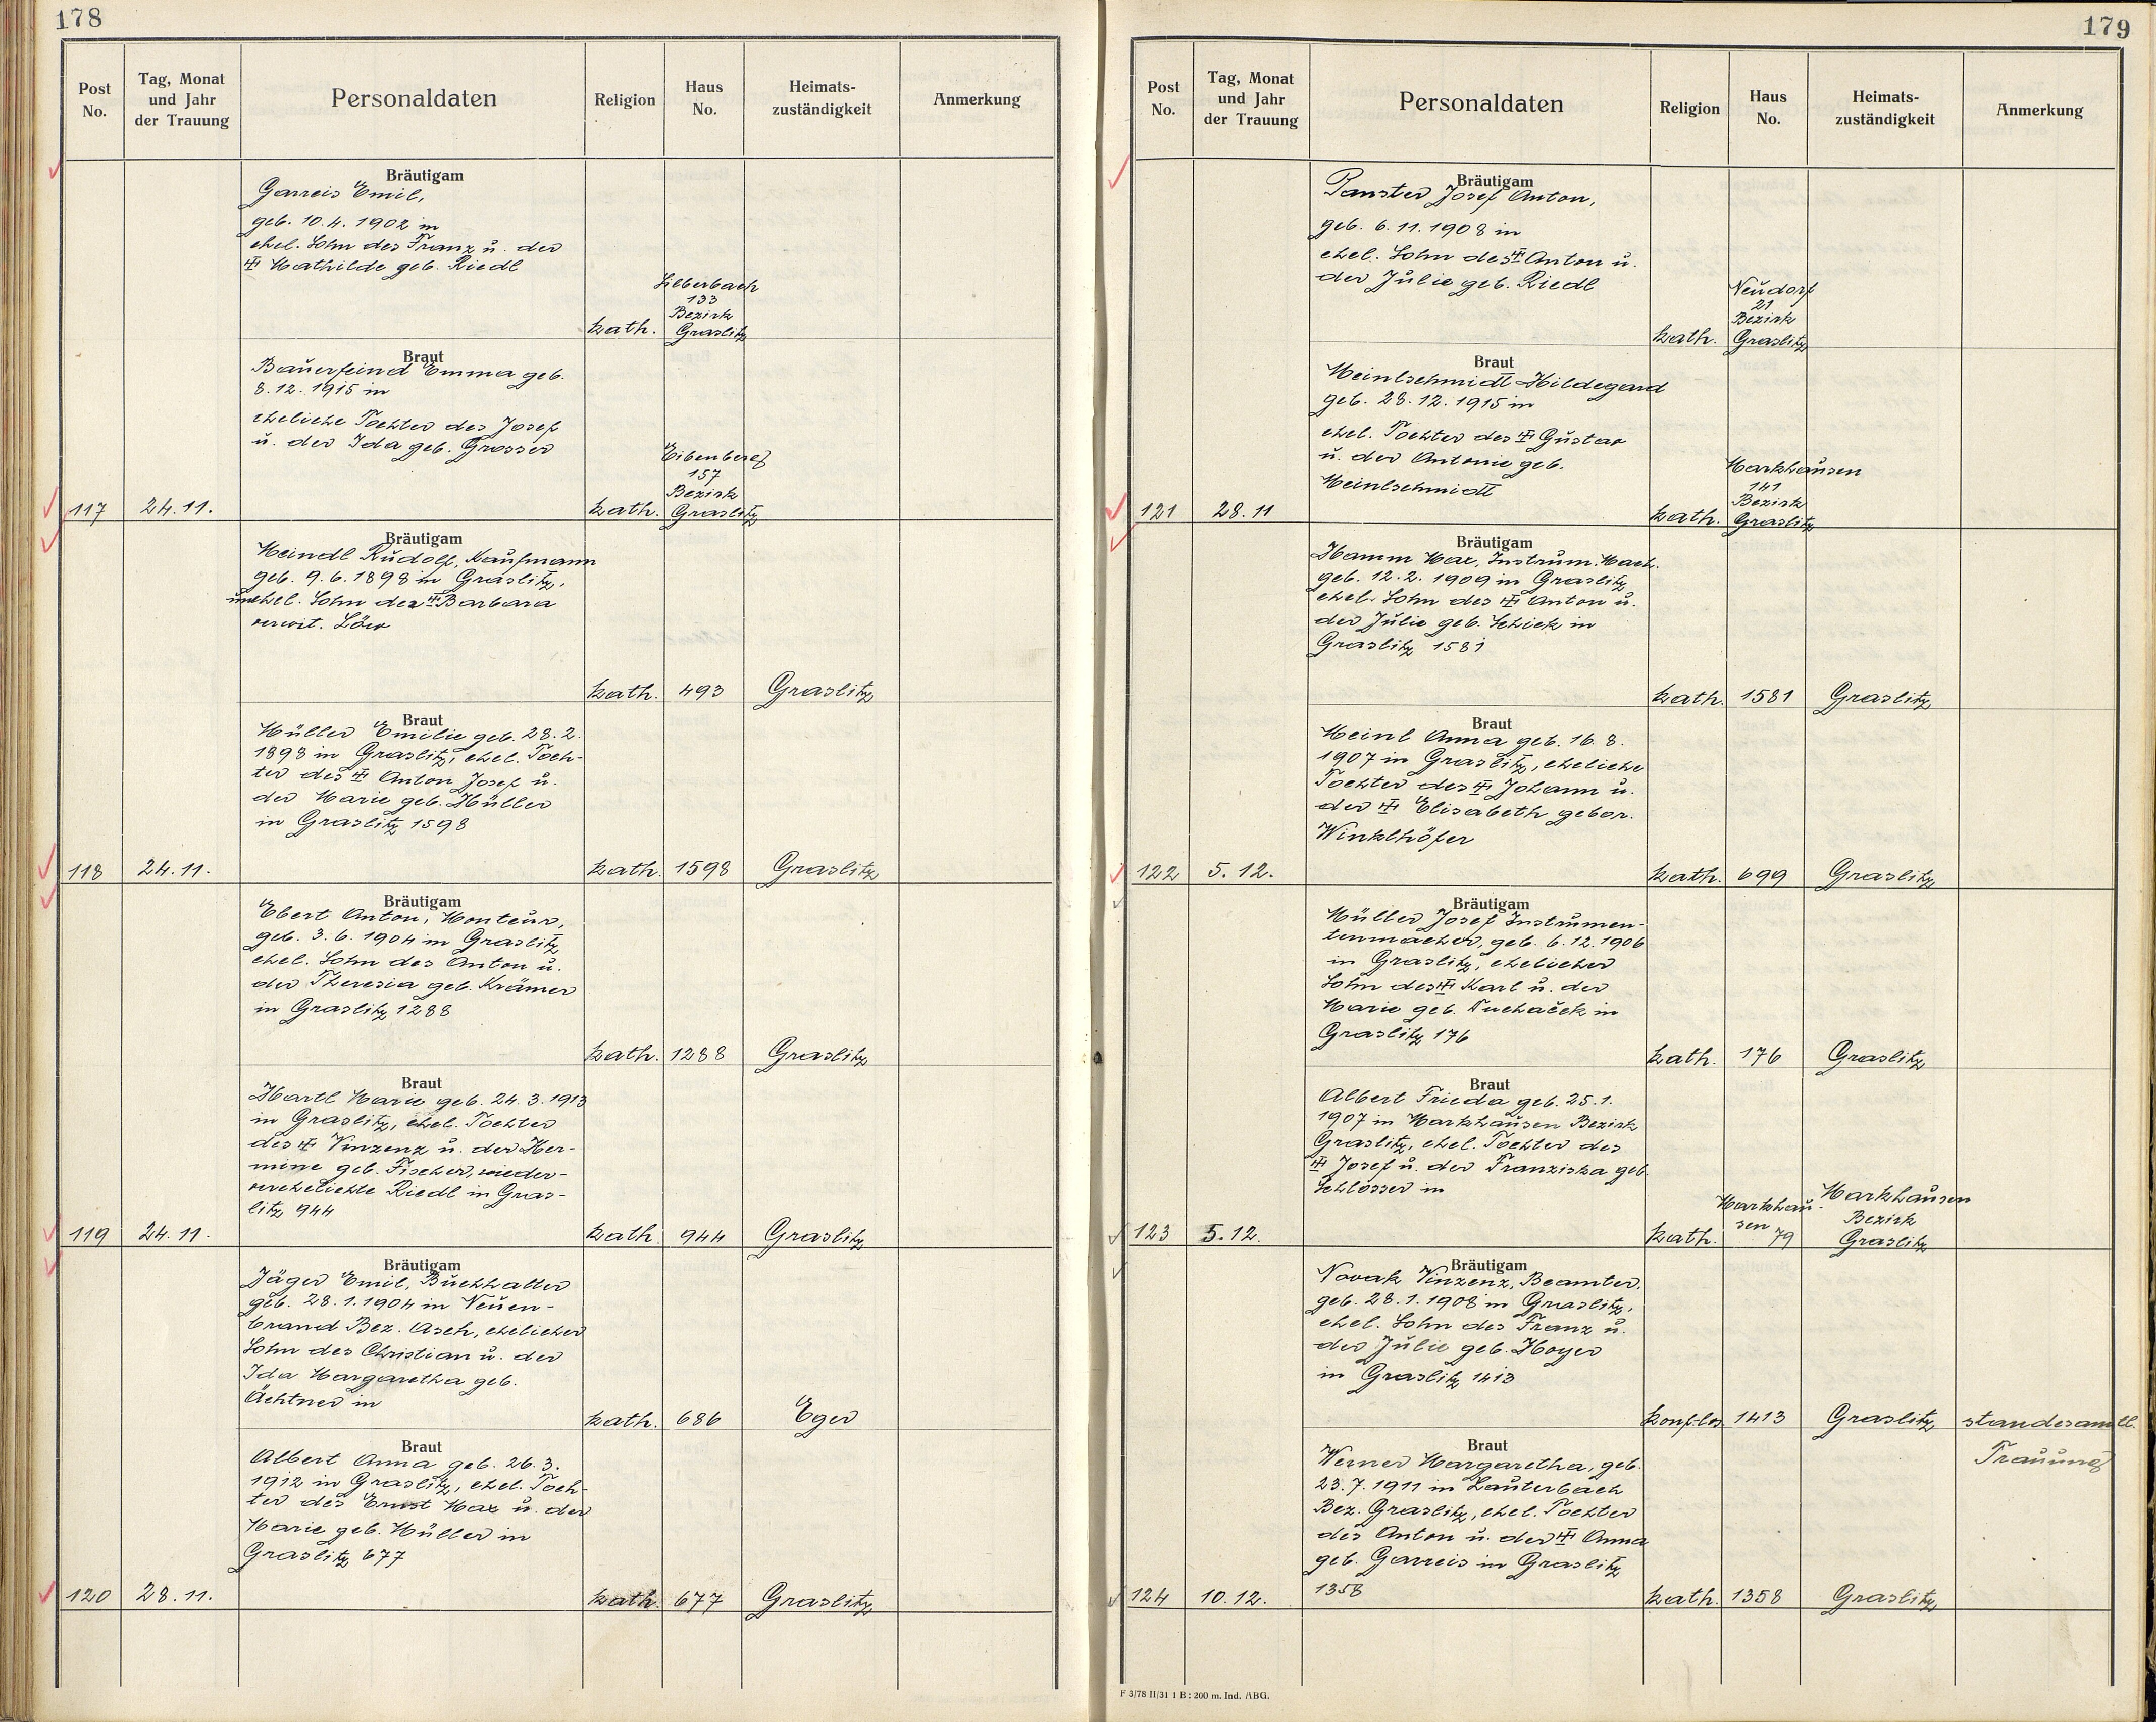 178
Post No.
Tag, Monat und Jahr der Trauung
Personaldaten
Religion
Haus No.
Heimats-zuständigkeit
Anmerkung
Bräutigam
Garreis Emil,
geb. 10.4.1902 in
ehel. Sohn des Franz u. der
Mathilde geb. Riedl
Seberbach
133
Bezirk
kath. Graslitz
Braut
Bauerfeind Emma geb.
8.12.1915 in
eheliche Tochter des Josef
u. der Ida geb. Grosser
Eibenberg
157
Bezirk
117 24.11. kath. Graslitz
Bräutigam
Meindl Rudolf, Kaufmann
geb. 9.6.1898 in Graslitz,
unehel. Sohn der Barbara
verwit. Löw
kath. 493 Graslitz
Braut
Müller Emilie geb. 28.2.
1898 in Graslitz, ehel. Toch-
ter des Anton Josef u.
der Marie geb. Hüller
in Graslitz 1598
118 24.11. kath. 1598 Graslitz
Bräutigam
Ebert Anton, Monteur,
geb. 3.6.1904 in Graslitz
ehel. Sohn des Anton u.
der Theresia geb. Krämer
in Graslitz 1288
kath. 1288 Graslitz
Braut
Hartl Marie geb. 24.3.1913
in Graslitz, ehel. Tochter
des Vinzenz u. der Her-
mine geb. Fischer, wieder-
verehelichte Riedl in Gras-
litz 944
119 24.11. kath. 944 Graslitz
Bräutigam
Jäger Emil, Buchhalter
geb. 28.1.1904 in Neuen-
brand Bez. Asch, ehelicher
Sohn des Christian u. der
Ida Margaretha geb.
Ächtner in
kath. 686 Eger
Braut
Albert Anna geb. 26.3.
1912 in Graslitz, ehel. Toch-
ter des Ernst Max u. der
Marie geb. Müller in
Graslitz 677
120 28.11. kath. 677 Graslitz
179
Post No.
Tag, Monat und Jahr der Trauung
Personaldaten
Religion
Haus No.
Heimats-zuständigkeit
Anmerkung
Bräutigam
Panster Josef Anton,
geb. 6.11.1908 in
ehel. Sohn des Anton u.
der Julie geb. Riedl
Neudorf
21
Bezirk
kath. Graslitz
Braut
Meinlschmidt Hildegard
geb. 28.12.1915 in
ehel. Tochter des Gustav
u. der Antonie geb.
Meinlschmidt
Markhausen
141
Bezirk
121 28.11 kath. Graslitz
Bräutigam
Hamm Max, Instrum. Mach.
geb. 12.2.1909 in Graslitz
ehel. Sohn des Anton u.
der Julie geb. Schick in
Graslitz 1581
kath. 1581 Graslitz
Braut
Meinl Anna geb. 16.8.
1907 in Graslitz, eheliche
Tochter des Johann u.
der Elisabeth gebor.
Winklhöfer
122 5.12. kath. 699 Graslitz
Bräutigam
Müller Josef Instrumen-
tenmacher, geb. 6.12.1906
in Graslitz, ehelicher
Sohn des Karl u. der
Marie geb. Suchaček in
Graslitz 176
kath. 176 Graslitz
Braut
Albert Frieda geb. 25.1.
1907 in Markhausen Bezirk
Graslitz, ehel. Tochter des
Josef u. der Franziska geb.
Schlosser in
Markhau- Markhausen
sen 79 Bezirk
123 5.12. kath. Graslitz
Bräutigam
Novak Vinzenz, Beamter,
geb. 28.1.1908 in Graslitz,
ehel. Sohn des Franz u.
der Julie geb. Hoyer
in Graslitz 1413
konf-los. 1413 Graslitz standesamtl.
Trauung
Braut
Werner Margaretha, geb.
23.7.1911 in Lauterbach
Bez. Graslitz, ehel. Tochter
des Anton u. der Anna
geb. Garreis in Graslitz
1358
124 10.12. kath. 1358 Graslitz
F 3/78 II/31 1 B : 200 m. Ind. ABG.